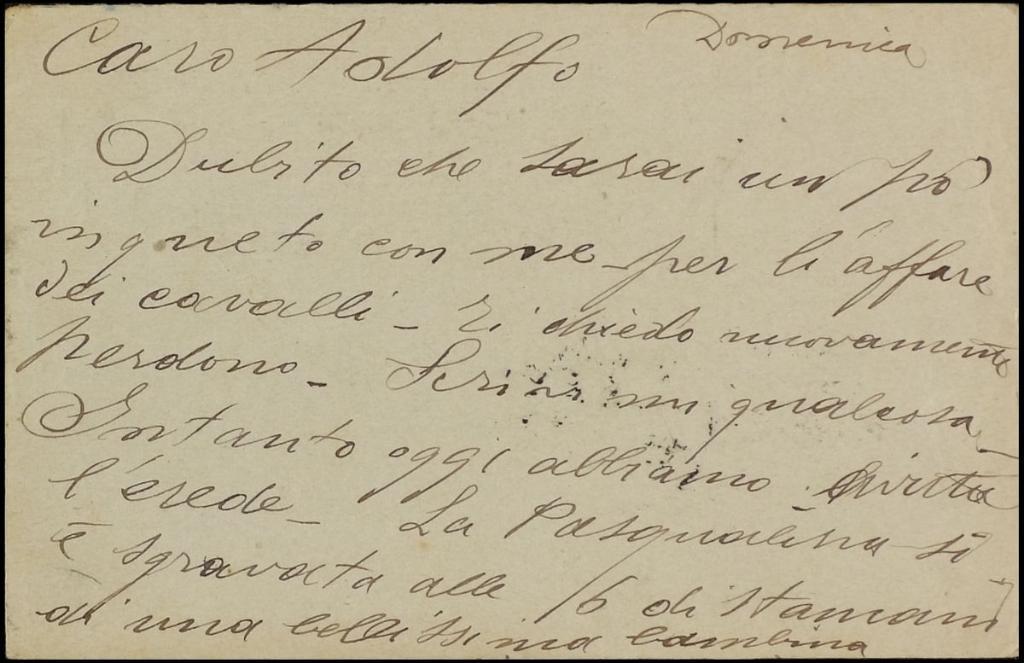 Domenica
Caro Adolfo
Dubito che sarai un pò
inqueto con me per l'affare
dei cavalli - Ti chiedo nuovamente
perdono - Scrivimi qualcosa -
Intanto oggi abbiamo
l'erede - La Pasqualina si
è sgravata alle 6 di stamani
di una bellissima bambina